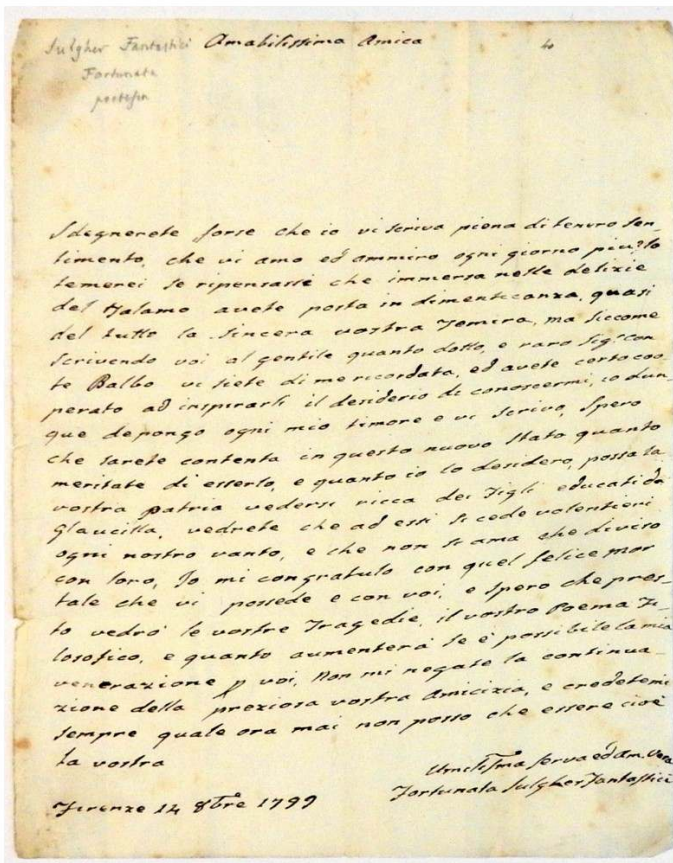 Sulgher Fantastici Amabilissima Amica 4
Fortunata
poetessa
Sdegnerete forse che io vi scriva piena di tenero sen-
timento, che vi amo ed ammiro ogni giorno più? Io
temerei se ripensassi che immersa nelle delizie
del Talamo avete posta in dimenticanza, quasi
del tutto la sincera vostra Temira, ma siccome
scrivendo voi al gentile quanto dotto, e raro Sigr Con
te Balbo vi siete di me ricordata, ed avete certo coo
perato ad inspirarli il desiderio di conoscermi, io dun-
que depongo ogni mio timore e vi scrivo, Spero
che sarete contenta in questo nuovo stato quanto
meritate di esserlo, e quanto io lo desidero, possa la
vostra patria vedersi ricca dei Figli educati da
Glaucilla, vedrete che ad essi si cede valentieri
ogni nostro vanto, e che non si ama che diviso
con loro, Io mi congratulo con quel felice mor
tale che vi possede e con voi, e spero che pres-
to vedrò le vostre Tragedie, il vostro Poema Fi-
losofico, e quanto aumenterà se è possibile la mia
venerazione p voi, Non mi negate la continua-
zione della preziosa vostra amicizia, e credetemi
sempre quale ora mai non posso che essere cioè
la vostra
Umilissma serva ed Am. Vera
Fortunata Sulgher Fantastici
Firenze 14 8bre 1799